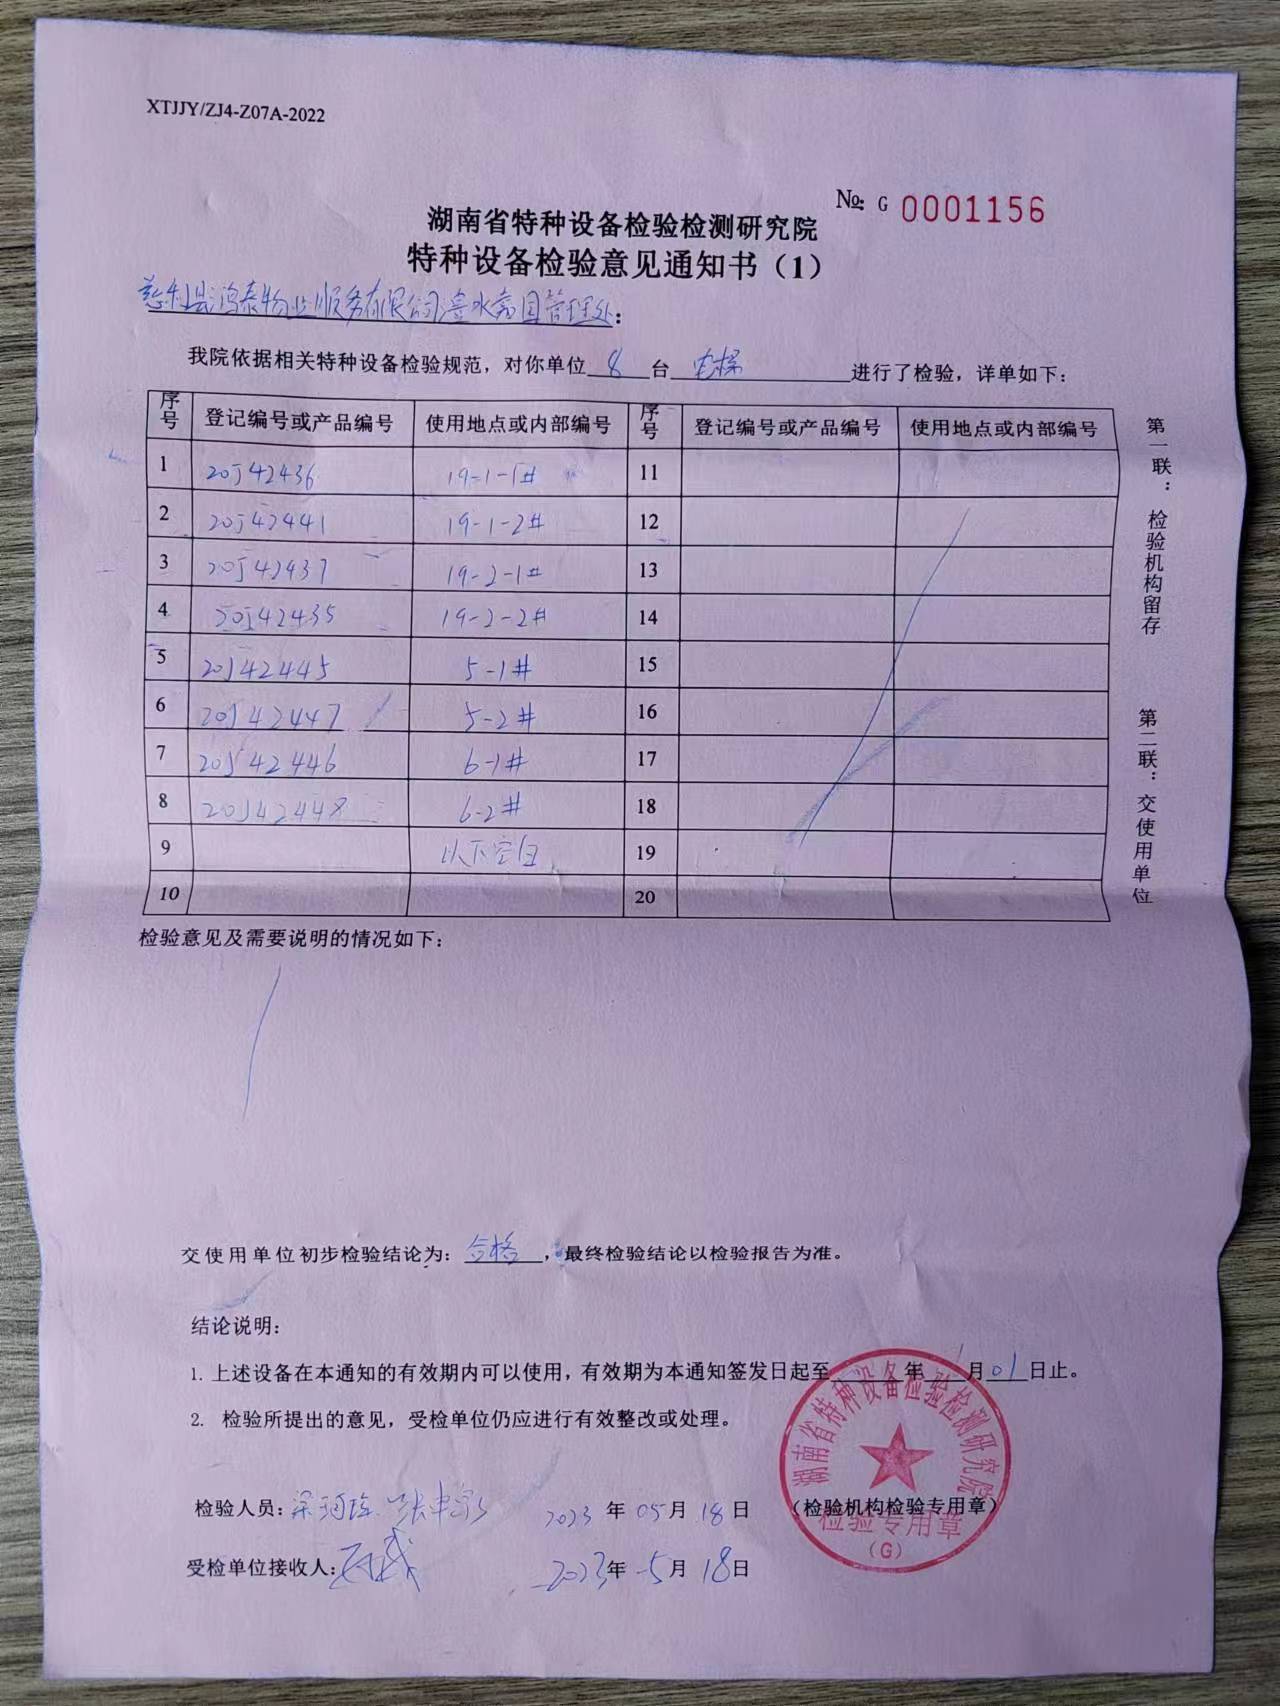 XTJJY/ZJ4-Z07A-2022
№: G 0001156
湖南省特种设备检验检测研究院
特种设备检验意见通知书（1）
慈利县鸿泰物业服务有限公司澧水商园管理处：
我院依据相关特种设备检验规范，对你单位 8 台 电梯 进行了检验，详单如下：
序号 登记编号或产品编号 使用地点或内部编号 序号 登记编号或产品编号 使用地点或内部编号
1 20J42436 19-1-1# 11
2 20J42441 19-1-2# 12
3 20J42437 19-2-1# 13
4 20J42435 19-2-2# 14
5 20J42445 5-1# 15
6 20J42447 5-2# 16
7 20J42446 6-1# 17
8 20J42448 6-2# 18
9 以下空白 19
10 20
第一联：检验机构留存
第二联：交使用单位
检验意见及需要说明的情况如下：
交使用单位初步检验结论为：合格，最终检验结论以检验报告为准。
结论说明：
1. 上述设备在本通知的有效期内可以使用，有效期为本通知签发日起至 年 月01日止。
2. 检验所提出的意见，受检单位仍应进行有效整改或处理。
检验人员： 2023 年 05 月 18 日 （检验机构检验专用章）
受检单位接收人： 2023 年 5 月 18 日
湖南省特种设备检验检测研究院
检验专用章
（G）